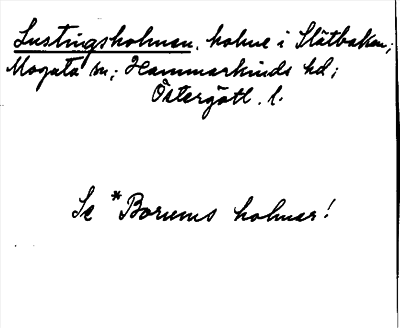 Lustingsholmen, holme i Slätbaken;
Mogata sn; Hammarkinds hd;
Östergötl. l.
Se *Borums holmar!